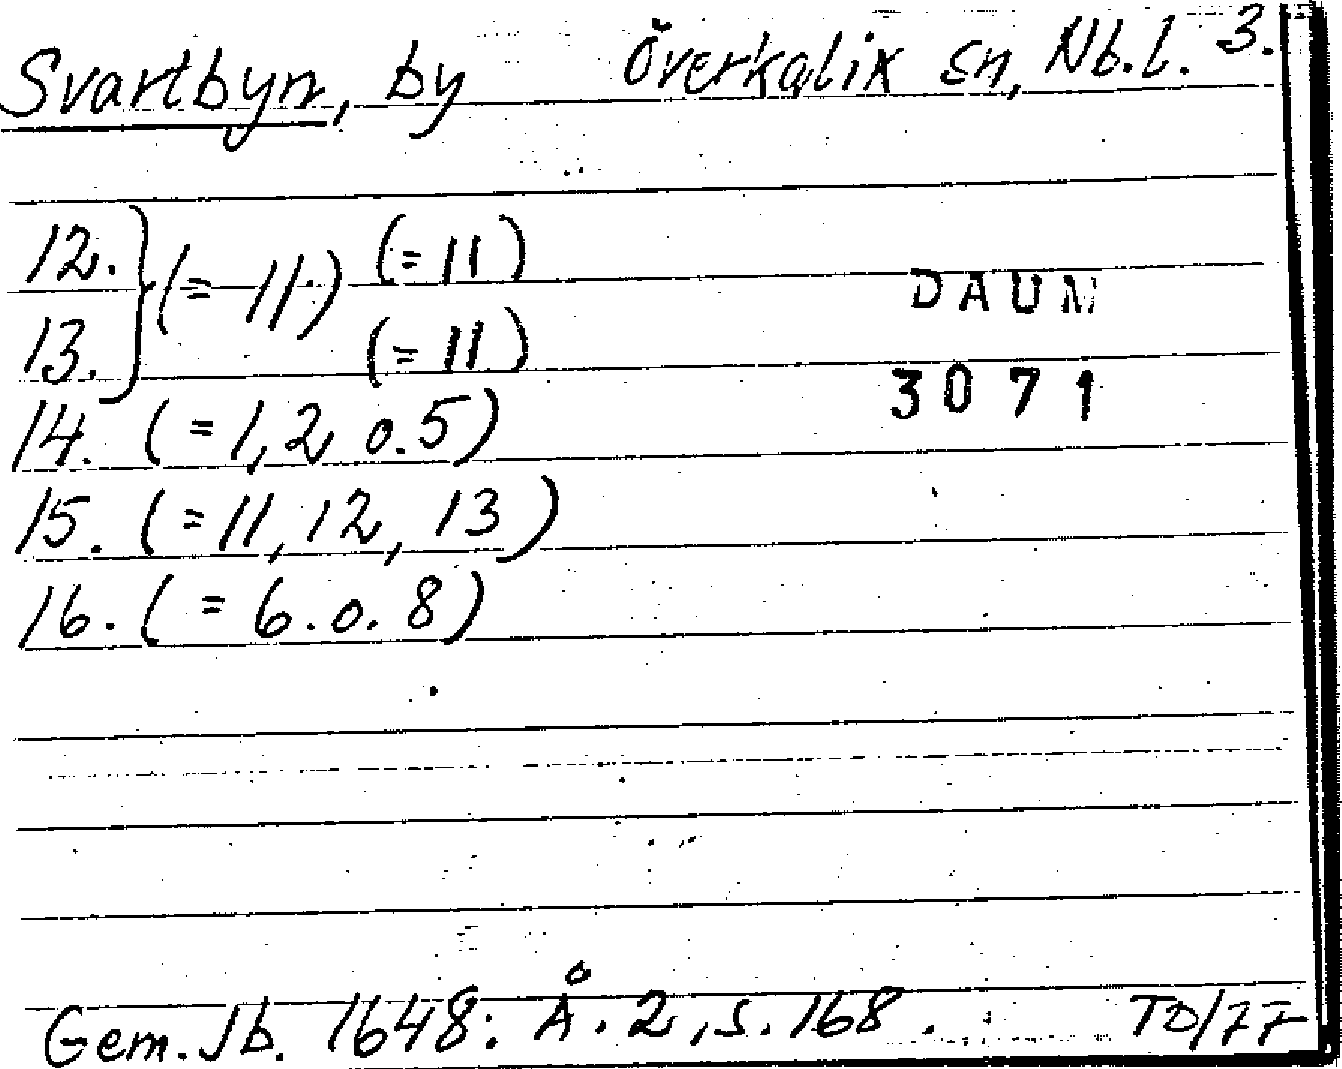 Svartbyn, by Överkalix sn, Nb.l. 3.
12. } (= 11) (= 11)
13. } (= 11)
DAUM
3071
14. (= 1, 2, o. 5)
15. (= 11, 12, 13)
16. (= 6. o. 8)
Gem. Jb. 1648: Å. 2, s. 168. TD/77